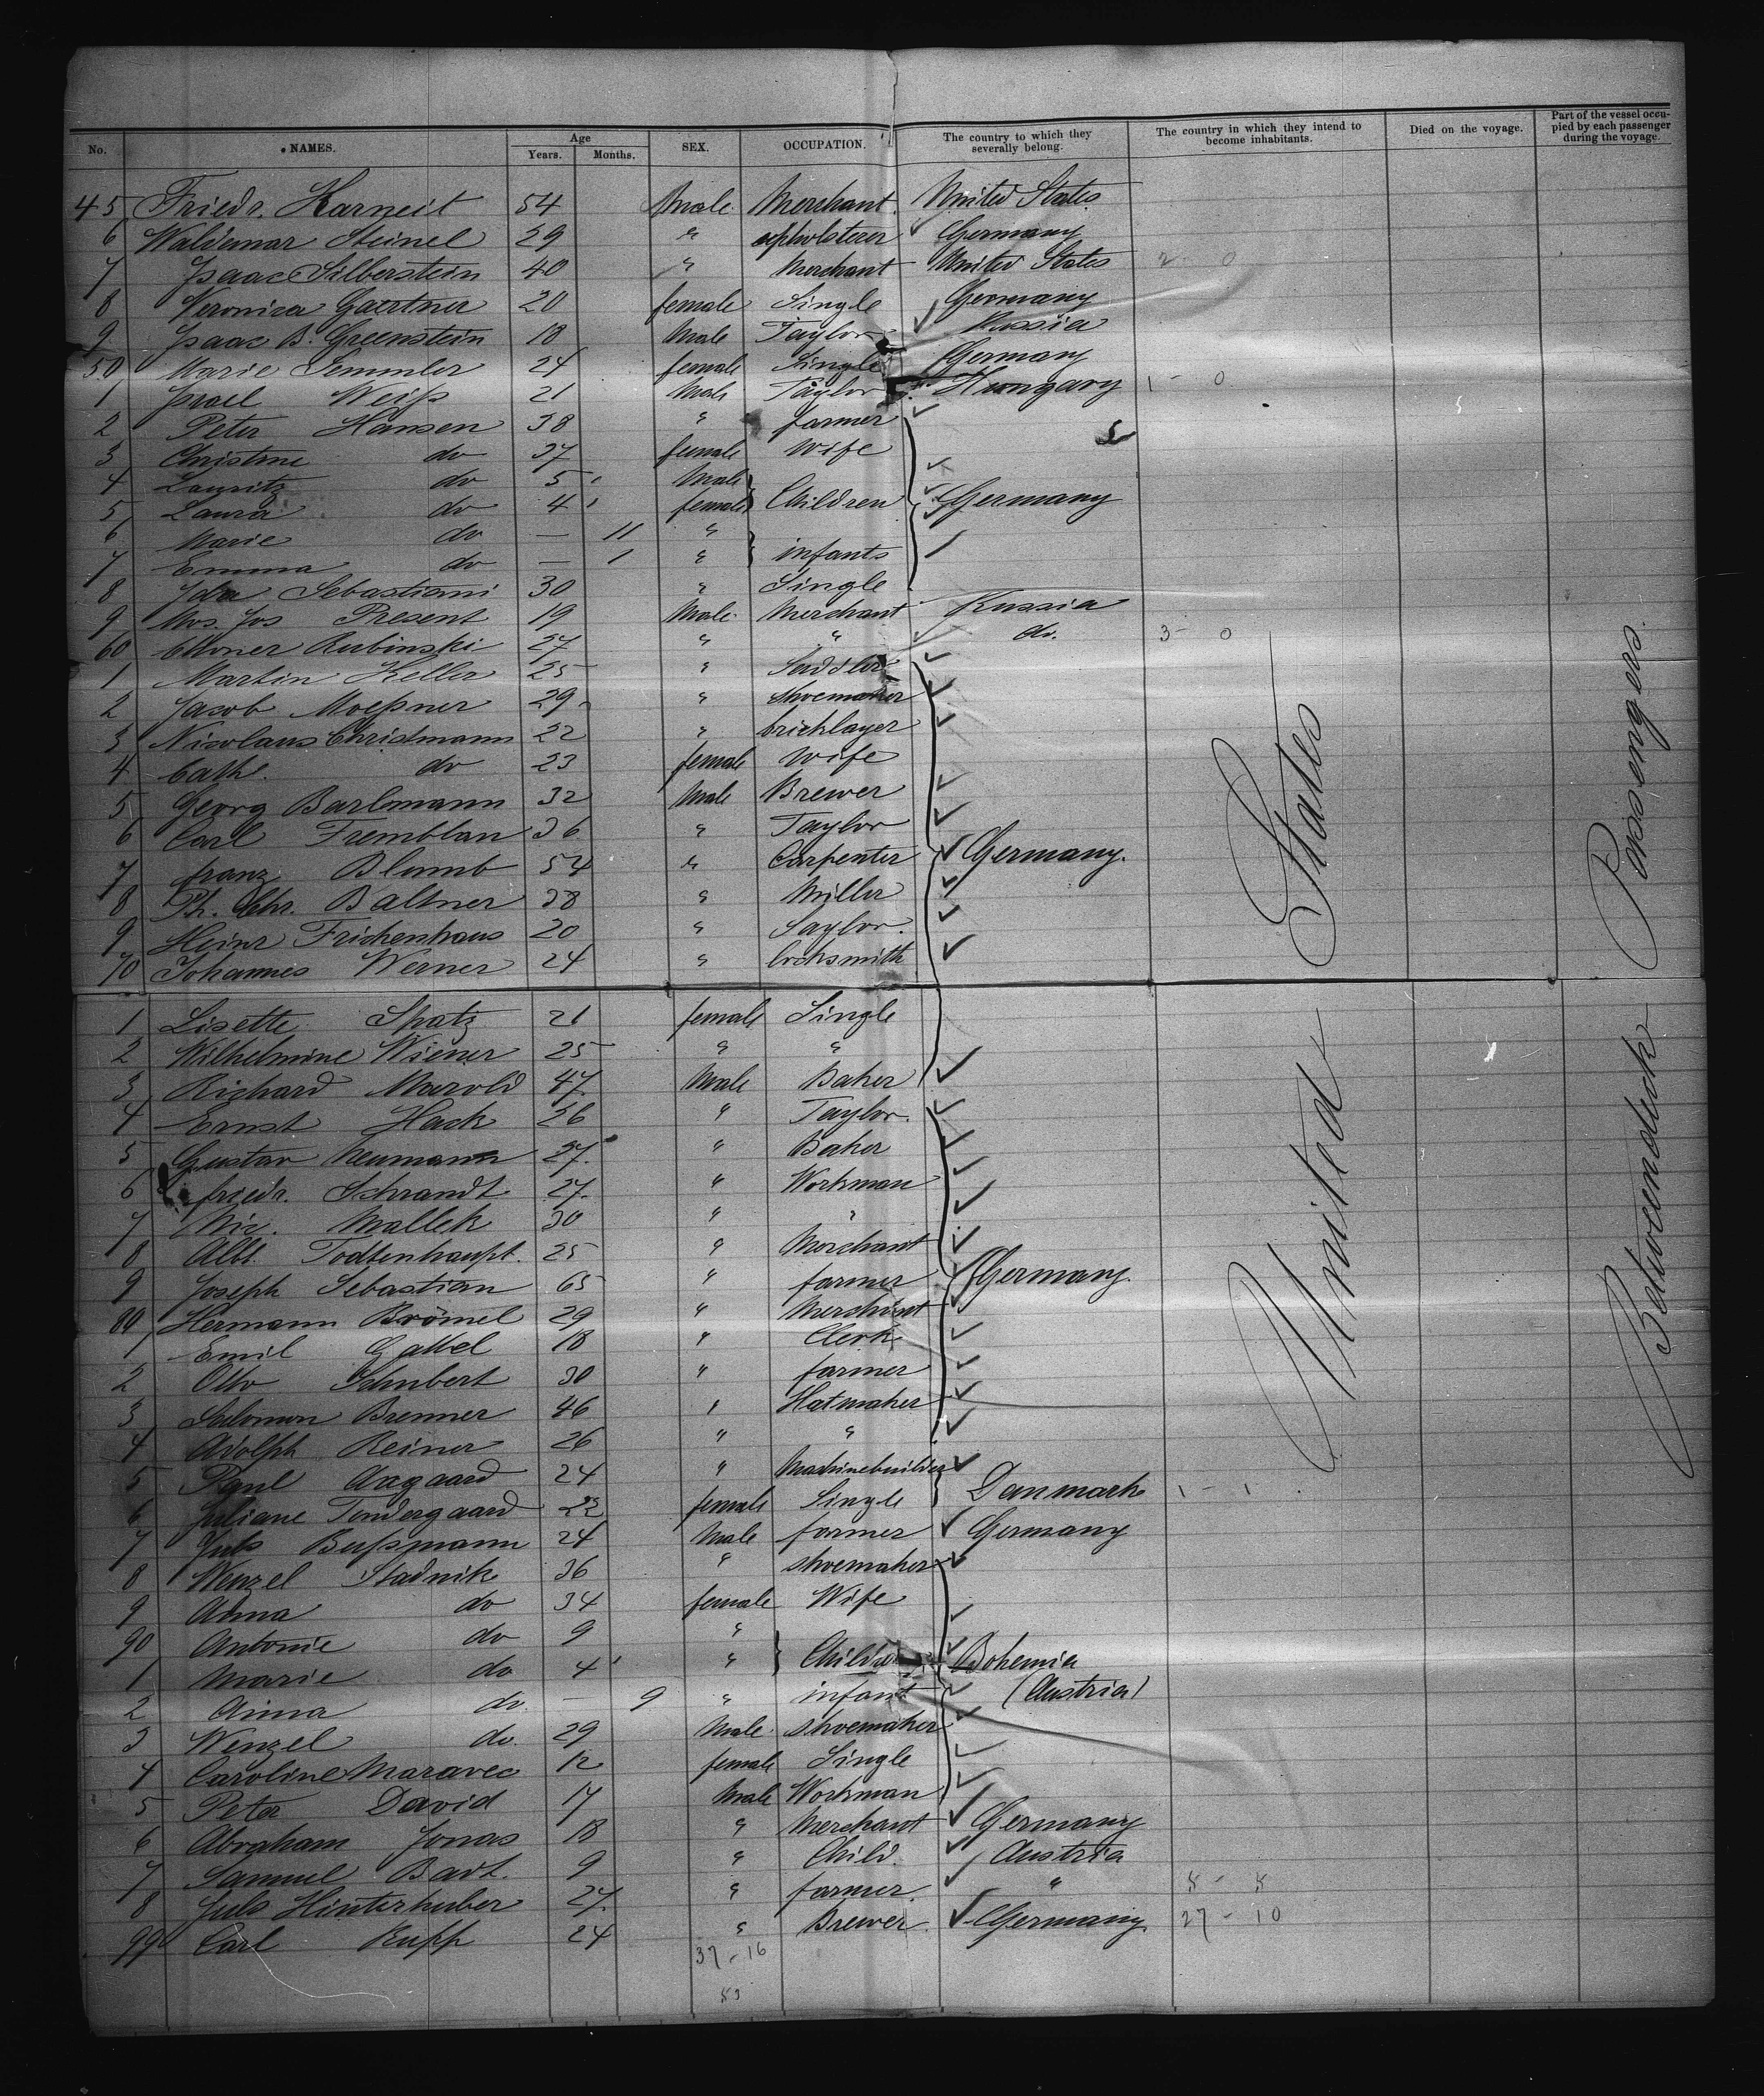 No. NAMES. Age Years. Months. SEX. OCCUPATION. The country to which they severally belong. The country in which they intend to become inhabitants. Died on the voyage. Part of the vessel occupied by each passenger during the voyage.
45 Friedr. Karneit 54 Male Merchant United States
6 Waldemar Steinel 29 " upholsterer Germany
7 Isaac Silberstein 40 " Merchant United States 2 - 0
8 Veronica Gaertner 20 female Single Germany
9 Isaac B. Greenstein 18 Male Taylor Russia
50 Marie Semmler 24 female Single Germany
1 Israel Weiss 21 Male Taylor Hungary 1 - 0
2 Peter Hansen 38 " farmer
3 Christine do 37 female wife
4 Lauritz do 5 Male
5 Laura do 4 female Children Germany
6 Marie do — 11 "
7 Emma do — 1 " infants
8 Ida Sebastiani 30 " Single
9 Mos. Jos Present 19 Male Merchant Russia
60 Rubinski 27 " " do. 3 - 0
1 Martin Keller 25 " Saddler
2 Jacob Moessner 29 " Shoemaker
3 Nicolaus Christmann 22 " bricklayer
4 Cath. do 23 female wife
5 Georg Barlmann 32 Male Brewer
6 Carl Tremblan 36 " Taylor
7 franz Blumb 54 " Carpenter Germany.
8 Ph. Chr. Baltner 38 " Miller
9 Heinr Frickenhaus 20 " Taylor.
70 Johannes Werner 24 " locksmith
1 Lisette Spatz 21 female Single
2 Wilhelmine Wiener 25 " "
3 Richard Marold 47 Male Baker
4 Ernst Hack 26 " Taylor.
5 Gustav Neumann 27. " Baker
6 friedr. Schrandt 27. " Workman
7 Nic. Mallek 30 " "
8 Albt. Todtenhaupt. 25 " Merchant
9 Joseph Sebastian 65 " farmer Germany.
80 Hermann Brömel 29 " Merchant
1 Emil 18 " Clerk
2 Otto Schubert 30 " farmer
3 Salomon Brenner 46 " Hatmaker
4 Adolph Reiner 26 " "
5 Paul Aagaard 24 " Machinebuilder
6 Juliane Tondergaard 22 female Single Danmark 1 - 1
7 Juls Bussmann 24 Male farmer Germany
8 Wenzel Stadnik 36 " shoemaker
9 Anna do 34 female Wife
90 Antonie do 9 "
1 Marie do 4 " Children Bohemia
2 Anna do — 9 " infant (Austria)
3 Wenzel do. 29 Male shoemaker
4 Caroline Maravec 12 female Single
5 Peter David 17 Male Workman
6 Abraham Jonas 18 " Merchant Germany
7 Samuel Badt. 9 " Child. Austria
8 Juls Hinterhuber 27. " farmer. " 5 - 5
99 Carl Rupp 24 " Brewer Germany. 27 - 10
37 - 16
53
United States
Betweendeck Passengers.